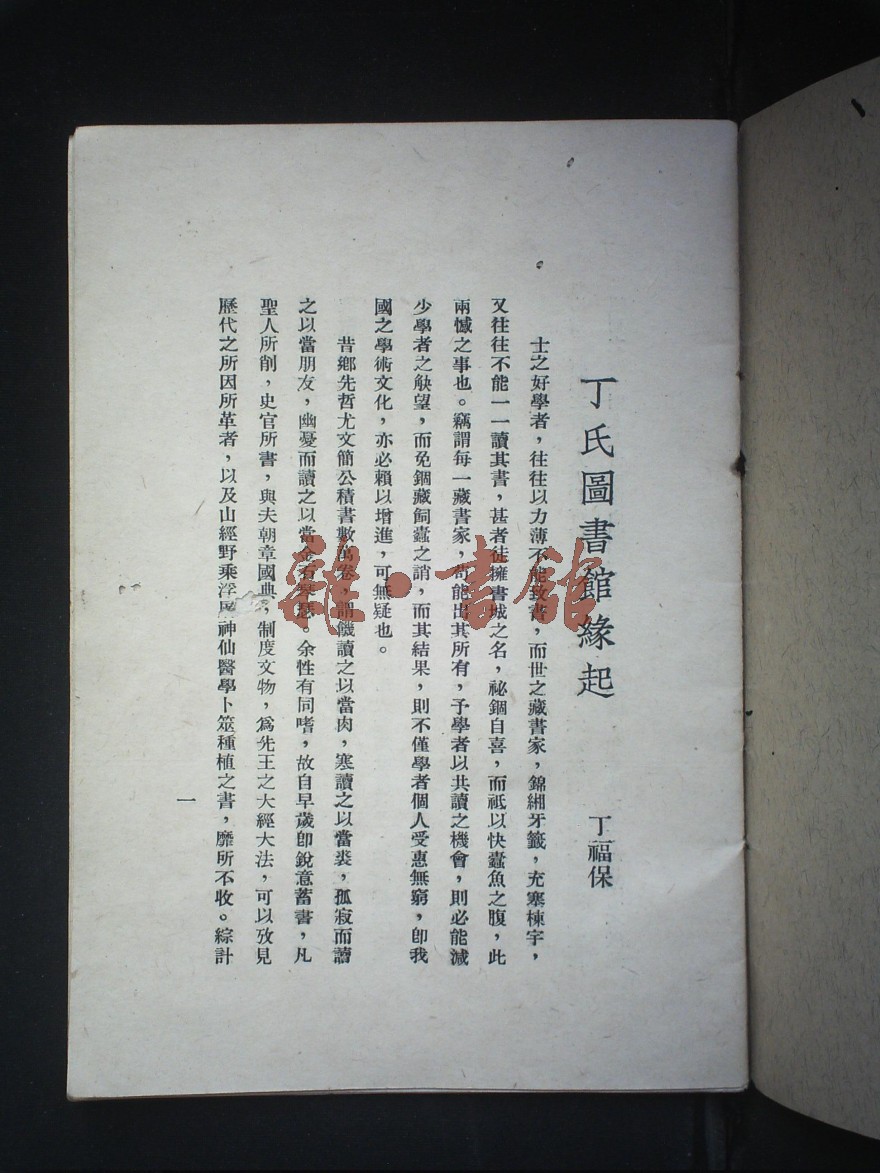 丁氏圖書館緣起
丁福保
士之好學者，往往以力薄不能致書，而世之藏書家，錦緗牙籤，充塞棟宇，
又往往不能一一讀其書，甚者徒擁書城之名，祕錮自喜，而祇以快蠹魚之腹，此
兩憾之事也。竊謂每一藏書家，苟能出其所有，予學者以共讀之機會，則必能減
少學者之觖望，而免錮藏飼蠹之誚，而其結果，則不僅學者個人受惠無窮，卽我
國之學術文化，亦必賴以增進，可無疑也。
昔鄉先哲尤文簡公積書數萬卷，謂饑讀之以當肉，寒讀之以當裘，孤寂而讀
之以當朋友，幽憂而讀之以當金石琴瑟。余性有同嗜，故自早歲卽銳意蓄書，凡
聖人所削，史官所書，與夫朝章國典，制度文物，爲先王之大經大法，可以攷見
歷代之所因所革者，以及山經野乘浮屠神仙醫學卜筮種植之書，靡所不收。綜計
一
雜·書館